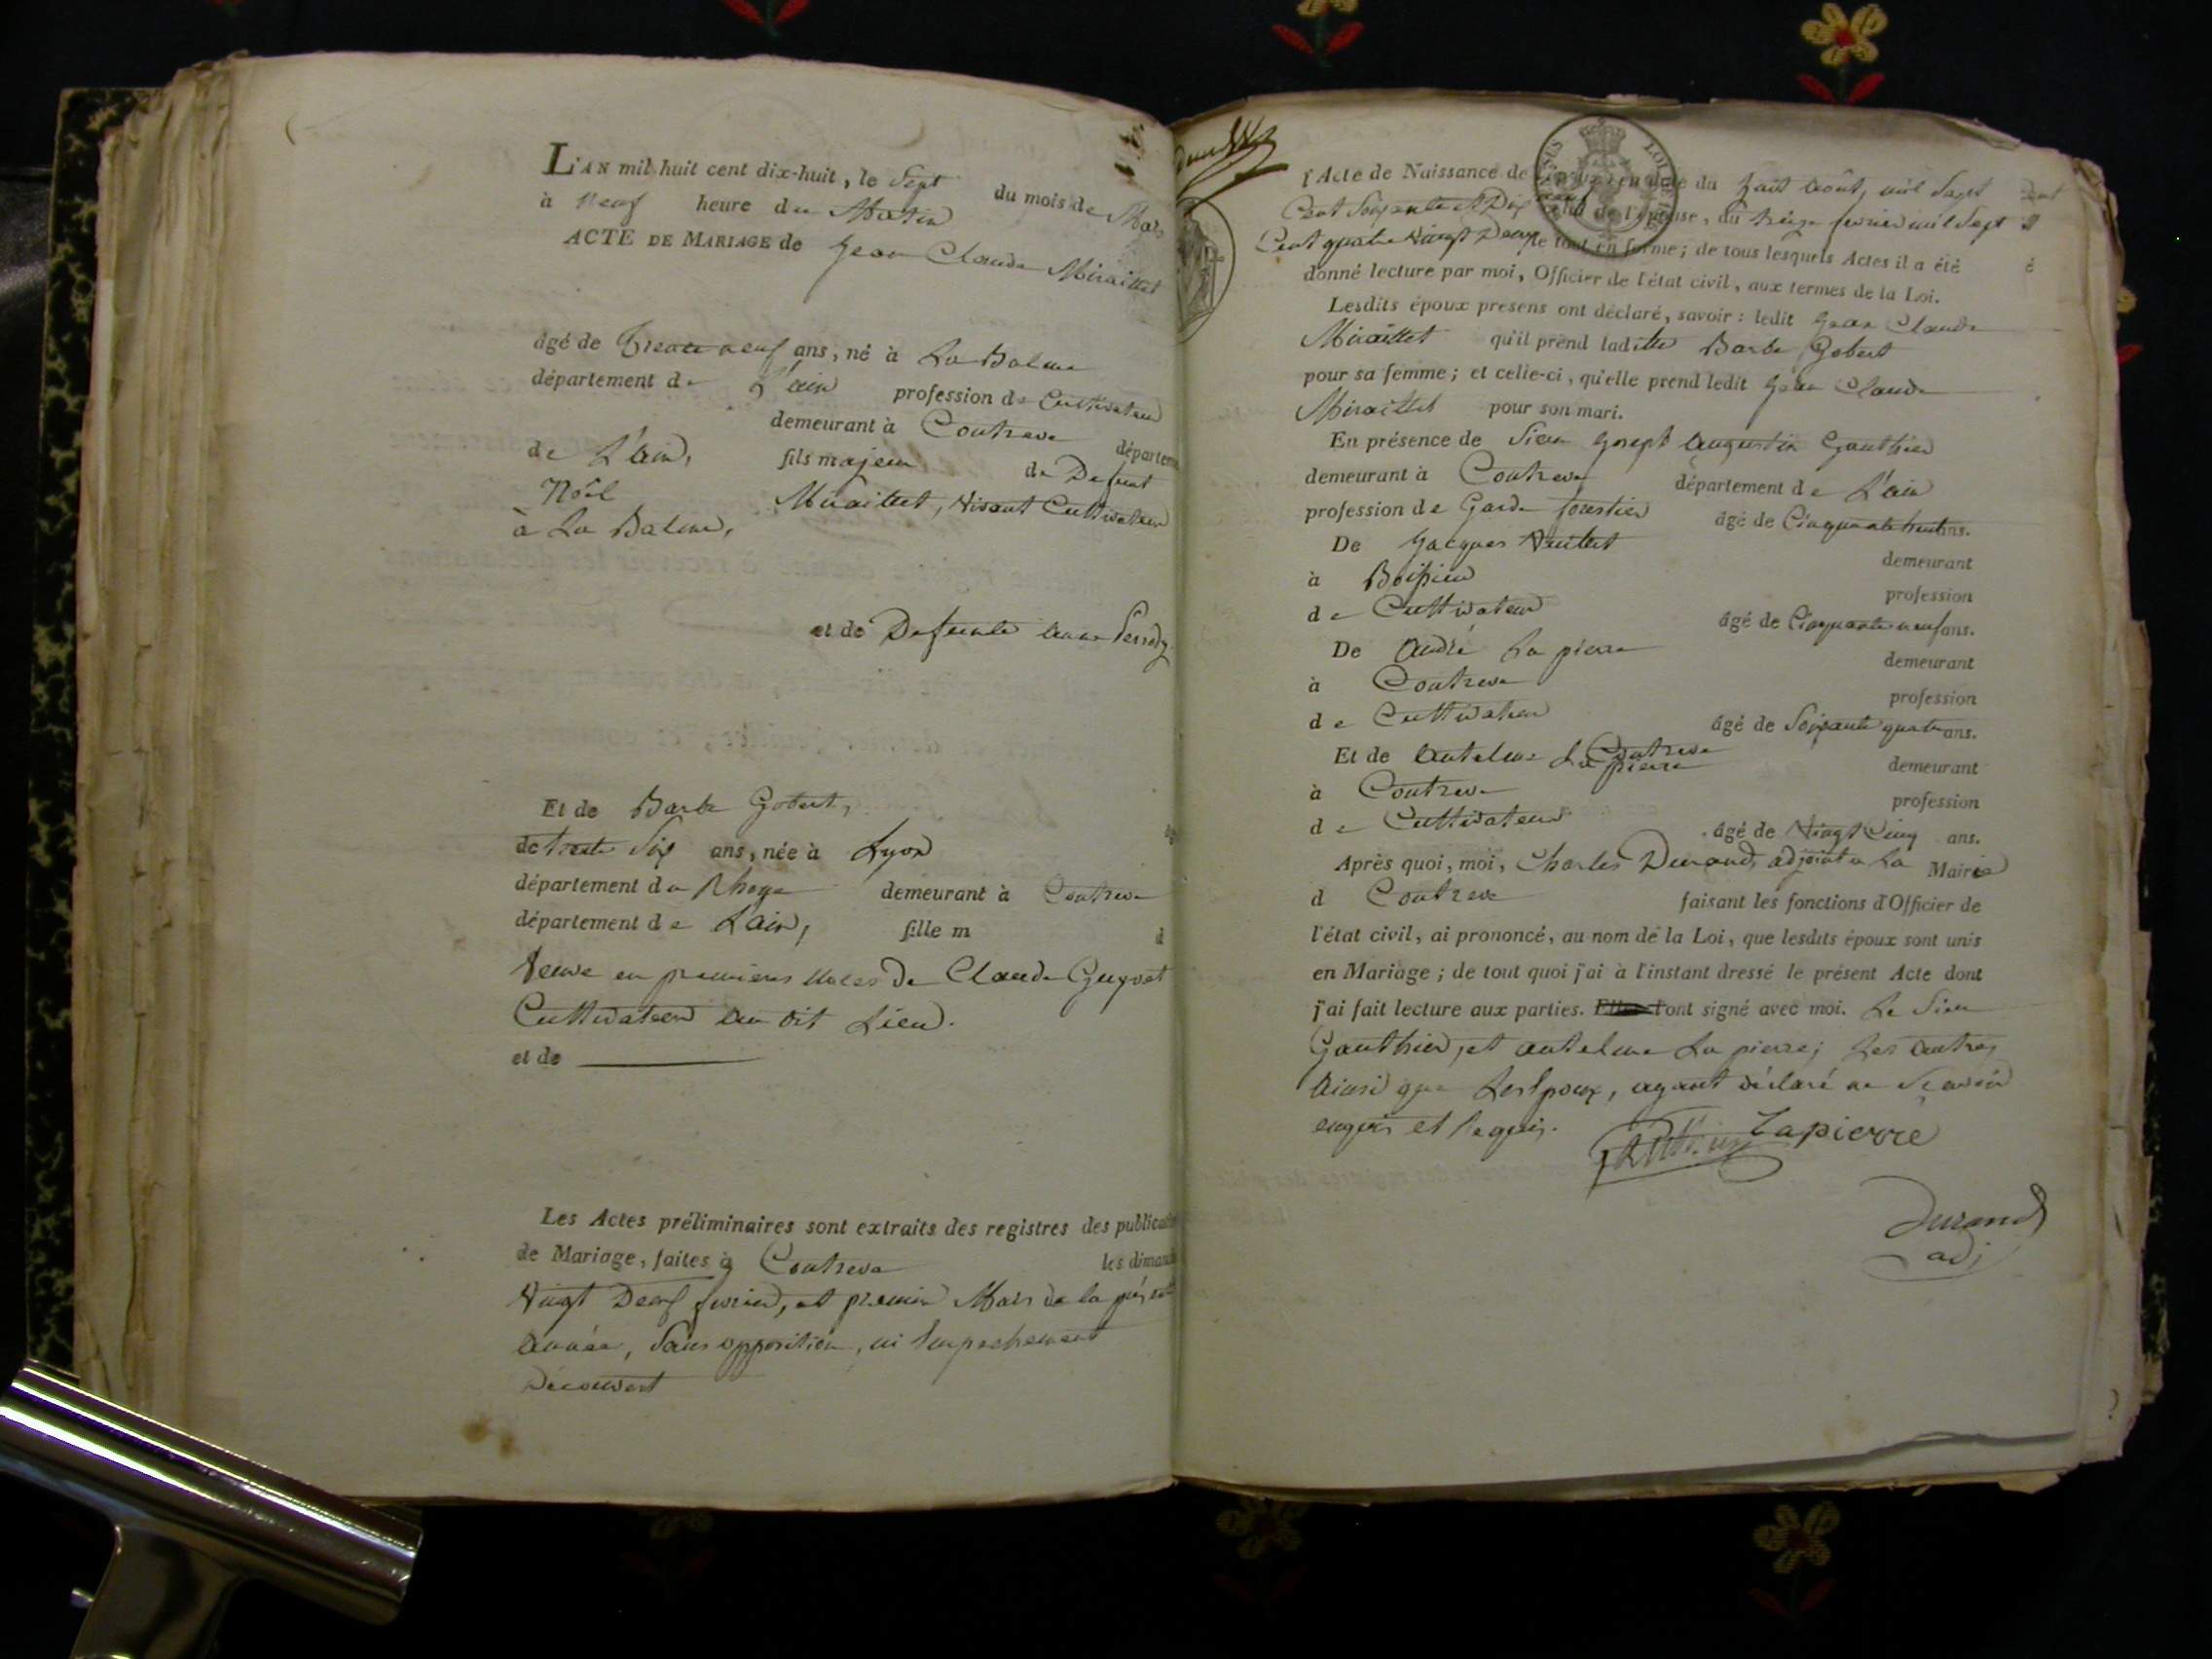 L'AN mil huit cent dix-huit, le Sept du mois de Mars
à Neuf heure du Matin
ACTE DE MARIAGE de Jean Claude Miraillet
âgé de Trente neuf ans, né à La Balme
département de L'ain profession de Cultivateur
demeurant à Contreve départem
de L'ain, fils majeur de Defunt
Noël Miraillet, vivant Cultivateur
à La Balme,
et de Defunte anne
Et de Barbe Gobert,
de trente Six ans, née à Lyon
département du Rhone demeurant à Contreve
département de L'ain, fille m d
Veuve en premieres noces de Claude Guyot
Cultivateur au dit Lieu.
et de
Les Actes préliminaires sont extraits des registres des publicati
de Mariage, faites à Contreve les dimanc
Vingt Deux fevrier, et premier Mars de la présente
année, Sans opposition, ni Empechement
Découvert
l'Acte de Naissance de l'époux en date du huit août, mil Sept
Cent Soixante et Dix neuf celui de l'épouse, du treize fevrier mil Sept
Cent quatre Vingt Deux le tout en forme; de tous lesquels Actes il a été
donné lecture par moi, Officier de l'état civil, aux termes de la Loi.
Lesdits époux présens ont déclaré, savoir: ledit Jean Claude
Miraillet qu'il prend laditte Barbe Gobert
pour sa femme; et celle-ci, qu'elle prend ledit Jean Claude
Miraillet pour son mari.
En présence de Sieur Joseph augustin Gauthier
demeurant à Contreve département de L'ain
profession de Garde forestier âgé de Cinquante huit ans.
De Jacques
demeurant
à Boissieu
profession
de Cultivateur âgé de Cinquante neuf ans.
De André La pierre
demeurant
à Contreve
profession
de Cultivateur âgé de Soixante quatre ans.
Et de antelme La pierre
demeurant
à Contreve
profession
de Cultivateur âgé de Vingt Cinq ans.
Après quoi, moi, Charles Durand, adjoint a La Mairie
d Contreve faisant les fonctions d'Officier de
l'état civil, ai prononcé, au nom de la Loi, que lesdits époux sont unis
en Mariage; de tout quoi j'ai à l'instant dressé le présent Acte dont
j'ai fait lecture aux parties. ont signé avec moi. Le Sieur
Gauthier, et antelme La pierre; Les autres
ainsi que Les Epoux, ayant déclaré ne Scavoir
enquis et Requis.
Lapierre
Durand
adj